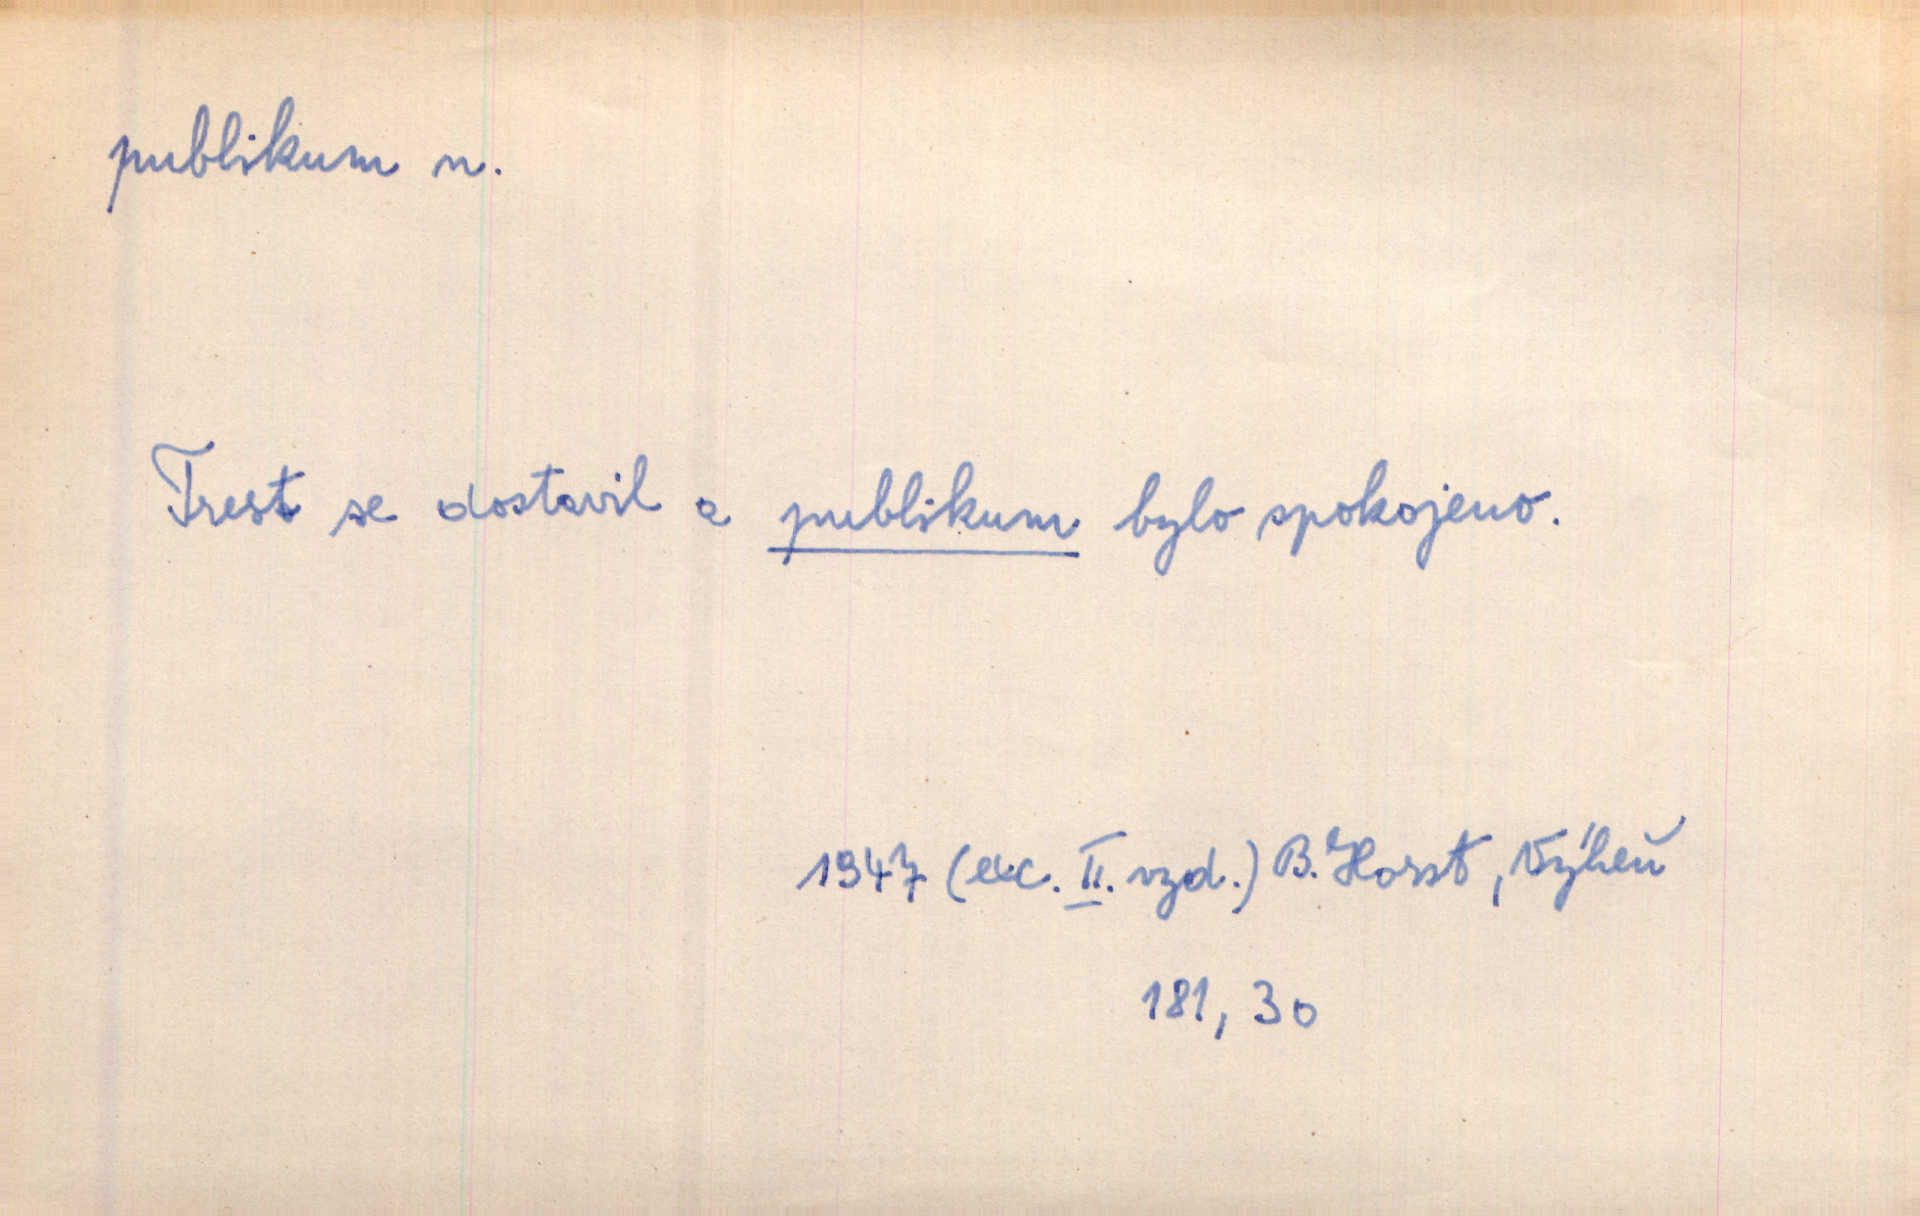 publikum n.
Trest se dostavil a publikum bylo spokojeno.
1947 (exc. II. vyd.) B. Horst, Výheň
181, 30